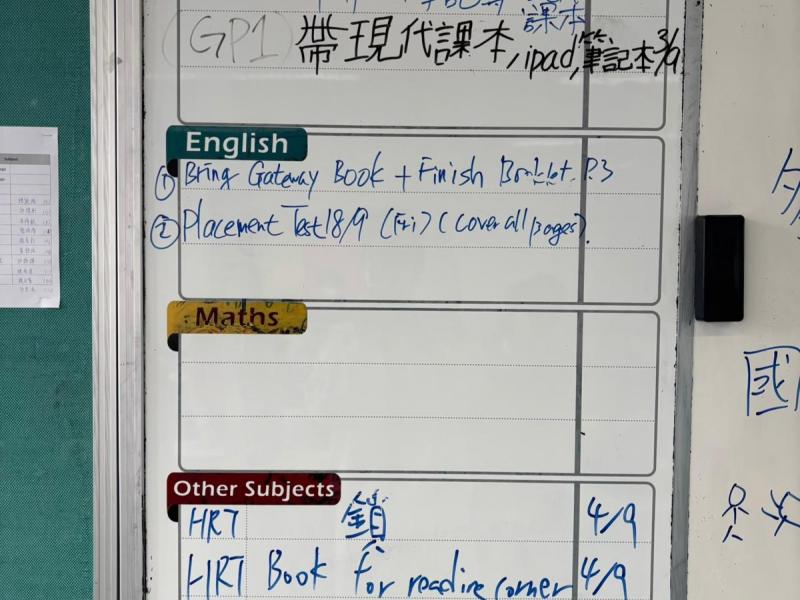 課本
(GP1) 帶現代課本, ipad, 筆記本 3/9
English
① Bring Gateway Book + Finish Booklet P.3
② Placement Test 18/9 (Fri) (cover all pages).
Maths
Other Subjects
HRT 鎖 4/9
HRT Book for reading corner 4/9
國